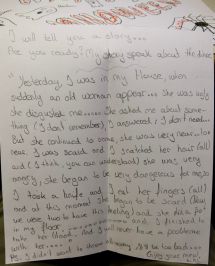 I will tell you a story...
Are you ready? My story speak about the
"Yesterday, I was in my House, when
suddenly an old woman appear... she was ugly
she disgusted me...... She asked me about some-
thing (I don't remember), I answered: I don't need...
But she continued to come she was very near... too
near. I was scared and I snatched her hair (all)
and (I think, you can understand) she was very
angry, she began to be very dangerous for me, so
I took a knife and I eat her fingers (all)
and at this moment she began to be scared
we were two to have this feeling and she
in my floor and I
will never have a problem
with her....
I didn't want to
Enjoy your meal